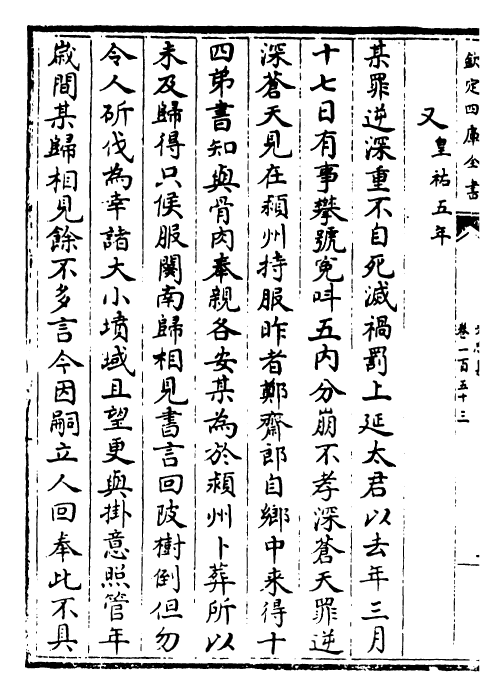 欽定四庫全書
卷一百五十三
又皇祐五年
某罪逆深重不自死滅禍罰上延太君以去年三月
十七日有事攀號冤呌五内分崩不孝深蒼天罪逆
深蒼天見在潁州持服昨者鄭齋郎自鄉中来得十
四弟書知與骨肉奉親各安某為於潁州卜葬所以
未及歸得只候服闋南歸相見書言回陂樹倒但勿
令人斫伐為幸諸大小墳域且望更與掛意照管年
嵗間某歸相見餘不多言今因嗣立人回奉此不具